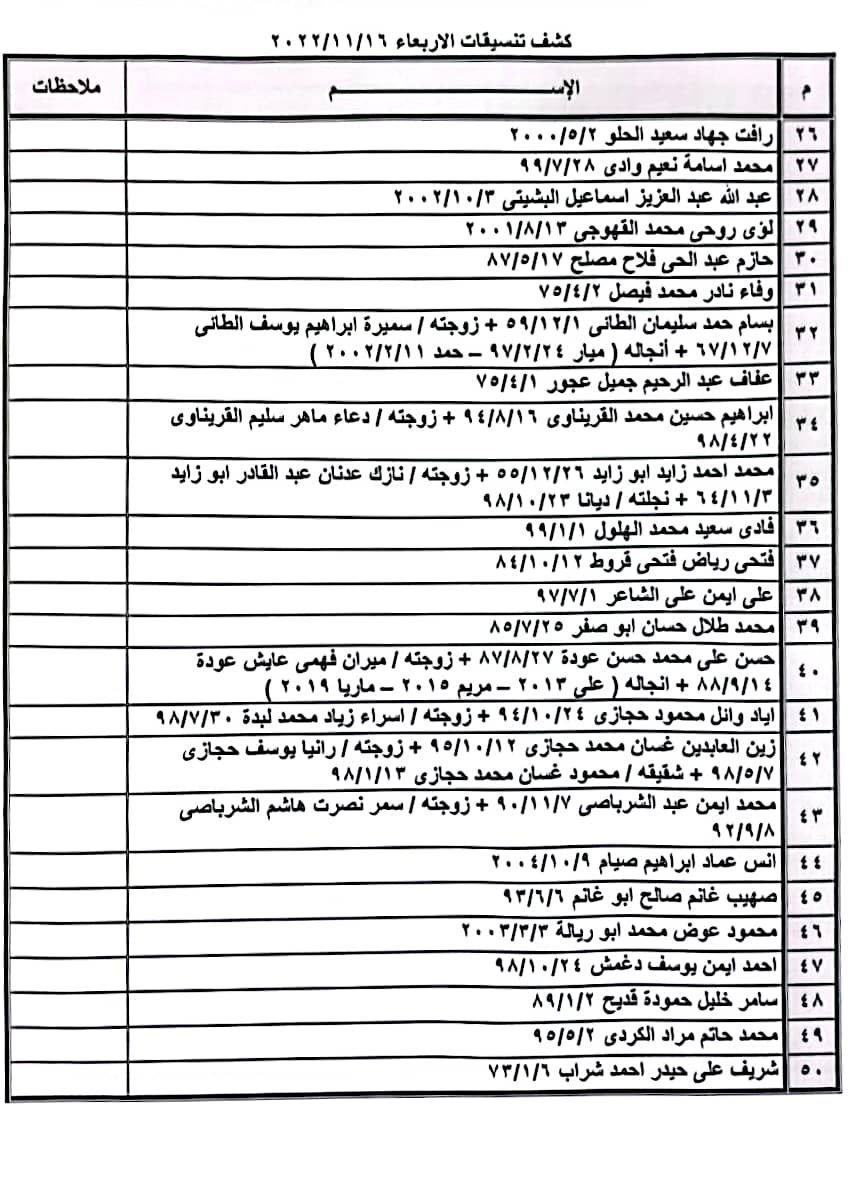 كشف تنسيقات الاربعاء ٢٠٢٢/١١/١٦
م الإســـم ملاحظات
٢٦ رافت جهاد سعيد الحلو ٢٠٠٠/٥/٢
٢٧ محمد اسامة نعيم وادى ٩٩/٧/٢٨
٢٨ عبد الله عبد العزيز اسماعيل البشيتى ٢٠٠٢/١٠/٣
٢٩ لؤى روحى محمد القهوجي ٢٠٠١/٨/١٣
٣٠ حازم عبد الحى فلاح مصلح ٨٧/٥/١٧
٣١ وفاء نادر محمد فيصل ٧٥/٤/٢
٣٢ بسام حمد سليمان الطائى ٥٩/١٢/١ + زوجته / سميرة ابراهيم يوسف الطائى
٦٧/١٢/٧ + أنجاله ( ميار ٩٧/٢/٢٤ – حمد ٢٠٠٢/٢/١١ )
٣٣ عفاف عبد الرحيم جميل عجور ٧٥/٤/١
٣٤ ابراهيم حسين محمد القريناوى ٩٤/٨/١٦ + زوجته / دعاء ماهر سليم القريناوى
٩٨/٤/٢٢
٣٥ محمد احمد زايد ابو زايد ٥٥/١٢/٢٦ + زوجته / نازك عدنان عبد القادر ابو زايد
٦٤/١١/٣ + نجلته / ديانا ٩٨/١٠/٢٣
٣٦ فادى سعيد محمد الهلول ٩٩/١/١
٣٧ فتحى رياض فتحى قروط ٨٤/١٠/١٢
٣٨ على ايمن على الشاعر ٩٧/٧/١
٣٩ محمد طلال حسان ابو صفر ٨٥/٧/٢٥
٤٠ حسن على محمد حسن عودة ٨٧/٨/٢٧ + زوجته / ميران فهمى عايش عودة
٨٨/٩/١٤ + انجاله ( على ٢٠١٣ – مريم ٢٠١٥ – ماريا ٢٠١٩ )
٤١ اياد وائل محمود حجازى ٩٤/١٠/٢٤ + زوجته / اسراء زياد محمد لبدة ٩٨/٧/٣٠
٤٢ زين العابدين غسان محمد حجازى ٩٥/١٠/١٢ + زوجته / رانيا يوسف حجازى
٩٨/٥/٧ + شقيقه / محمود غسان محمد حجازى ٩٨/١/١٣
٤٣ محمد ايمن عبد الشرباصى ٩٠/١١/٧ + زوجته / سمر نصرت هاشم الشرباصى
٩٢/٩/٨
٤٤ انس عماد ابراهيم صيام ٢٠٠٤/١٠/٩
٤٥ صهيب غانم صالح ابو غانم ٩٣/٦/٦
٤٦ محمود عوض محمد ابو ريالة ٢٠٠٣/٣/٣
٤٧ احمد ايمن يوسف دغمش ٩٨/١٠/٢٤
٤٨ سامر خليل حمودة قديح ٨٩/١/٢
٤٩ محمد حاتم مراد الكردى ٩٥/٥/٢
٥٠ شريف على حيدر احمد شراب ٧٣/١/٦